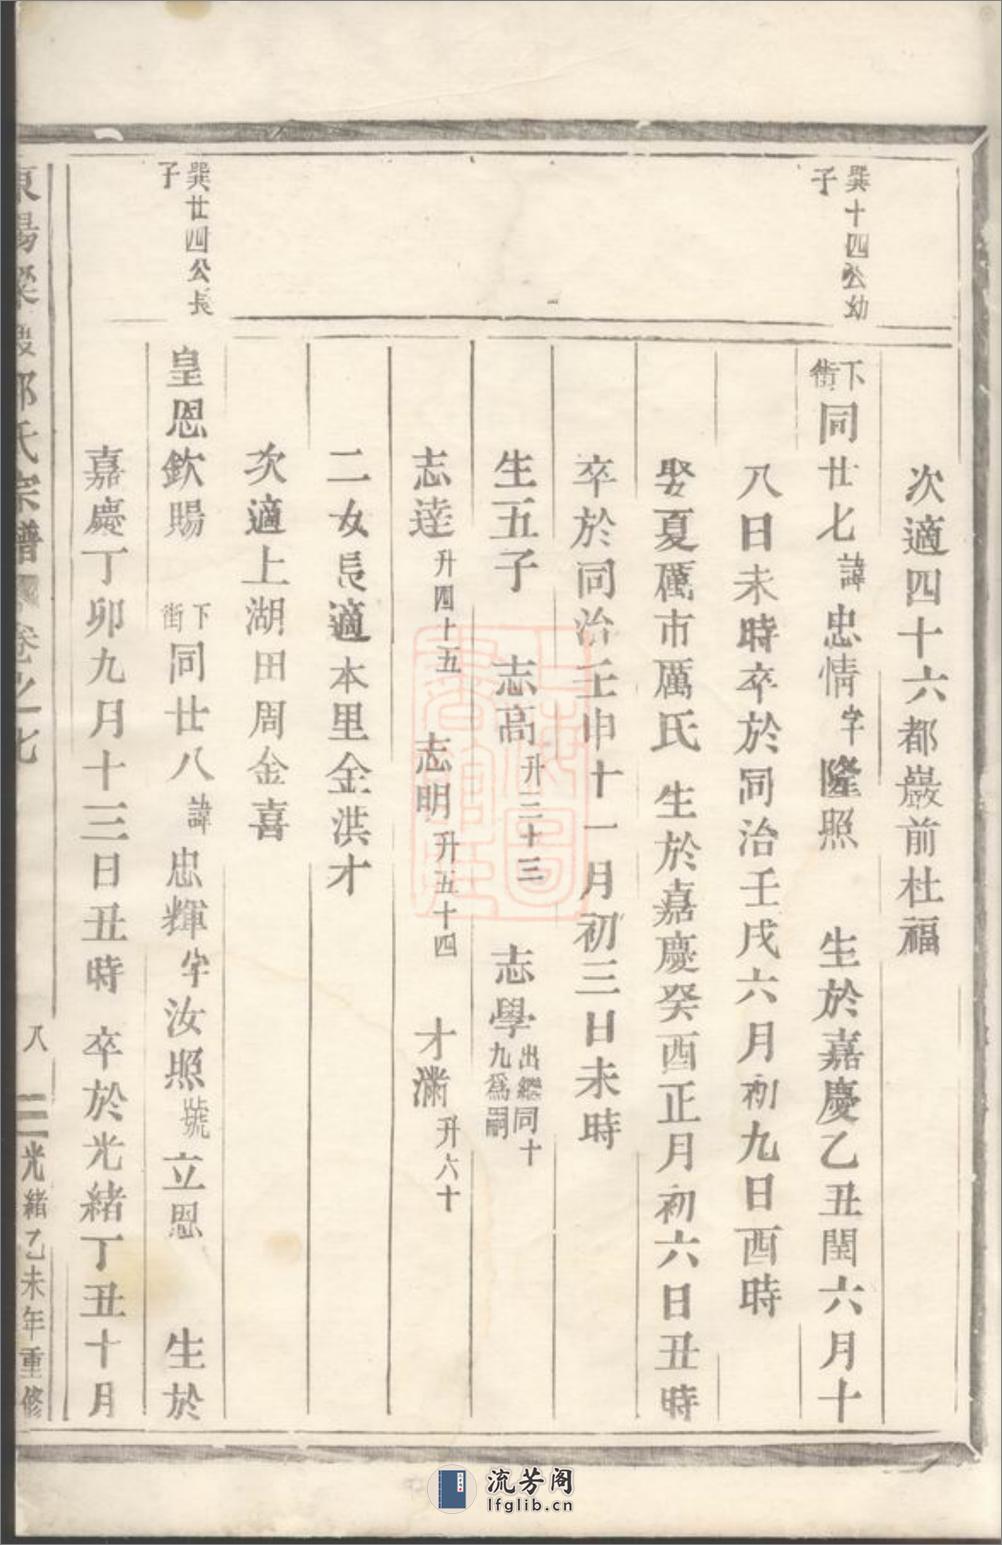 次適四十六都巖前杜福
巽十四公幼
子
下街同廿七諱忠情字隆照 生於嘉慶乙丑閏六月十
八日未時卒於同治壬戌六月初九日酉時
娶夏厲市厲氏 生於嘉慶癸酉正月初六日丑時
卒於同治壬申十一月初三日未時
生五子 志高升二十三 志學出繼同十九為嗣
志達升四十五 志明升五十四 才滿升六十
二女長適本里金洪才
次適上湖田周金喜
巽廿四公長
子
皇恩欽賜 下街同廿八諱忠輝字汝照號立恩 生於
嘉慶丁卯九月十三日丑時 卒於光緒丁丑十月
東陽 郭氏宗譜 卷之七 八 光緒乙未年重修
流芳阁
lfglib.cn